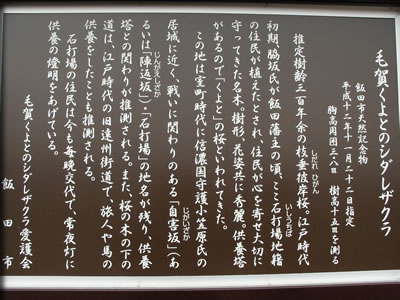 毛賀くよとのシダレザクラ
飯田市天然記念物
平成十二年十一月二十二日指定
胸高周囲三・八m 樹高十五mを測る
推定樹齢三百年余の枝垂彼岸桜。江戸時代
初期、脇坂氏が飯田藩主の頃、ここ石打場地籍
の住民が植えたとされ、住民が心を寄せ大切に
守ってきた名木。樹形、花姿共に秀麗。供養塔
があるので「くよと」の桜といわれてきた。
この地は室町時代に信濃国守護小笠原氏の
居城に近く、戦いに関わりのある「自害坂」(あ
るいは「陣返坂」)、「名打場」の地名が残り、供養
塔との関わりが推測される。また、桜の木の下の
道は、江戸時代の旧遠州街道で、旅人や馬の
供養をしたことも推測される。
石打場の住民は今も毎晩交代で、常夜灯に
供養の燈明をあげている。
毛賀くよとのシダレザクラ愛護会
飯田市